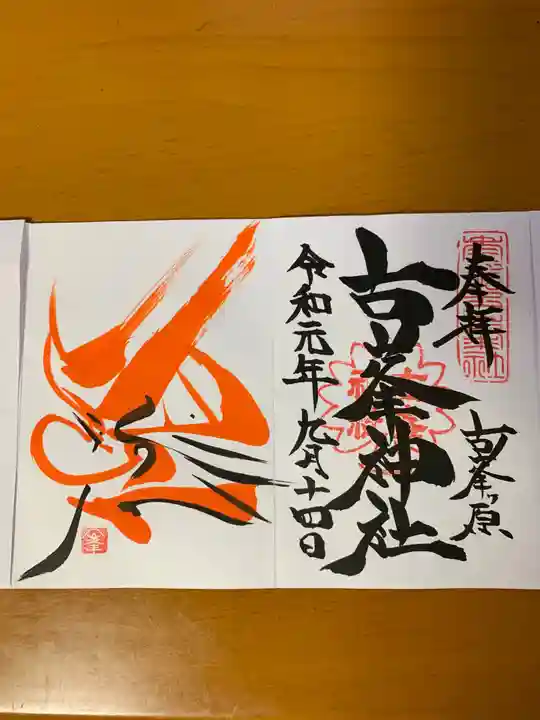 奉拝
古峯ヶ原
古峯神社
令和元年九月十四日
峯